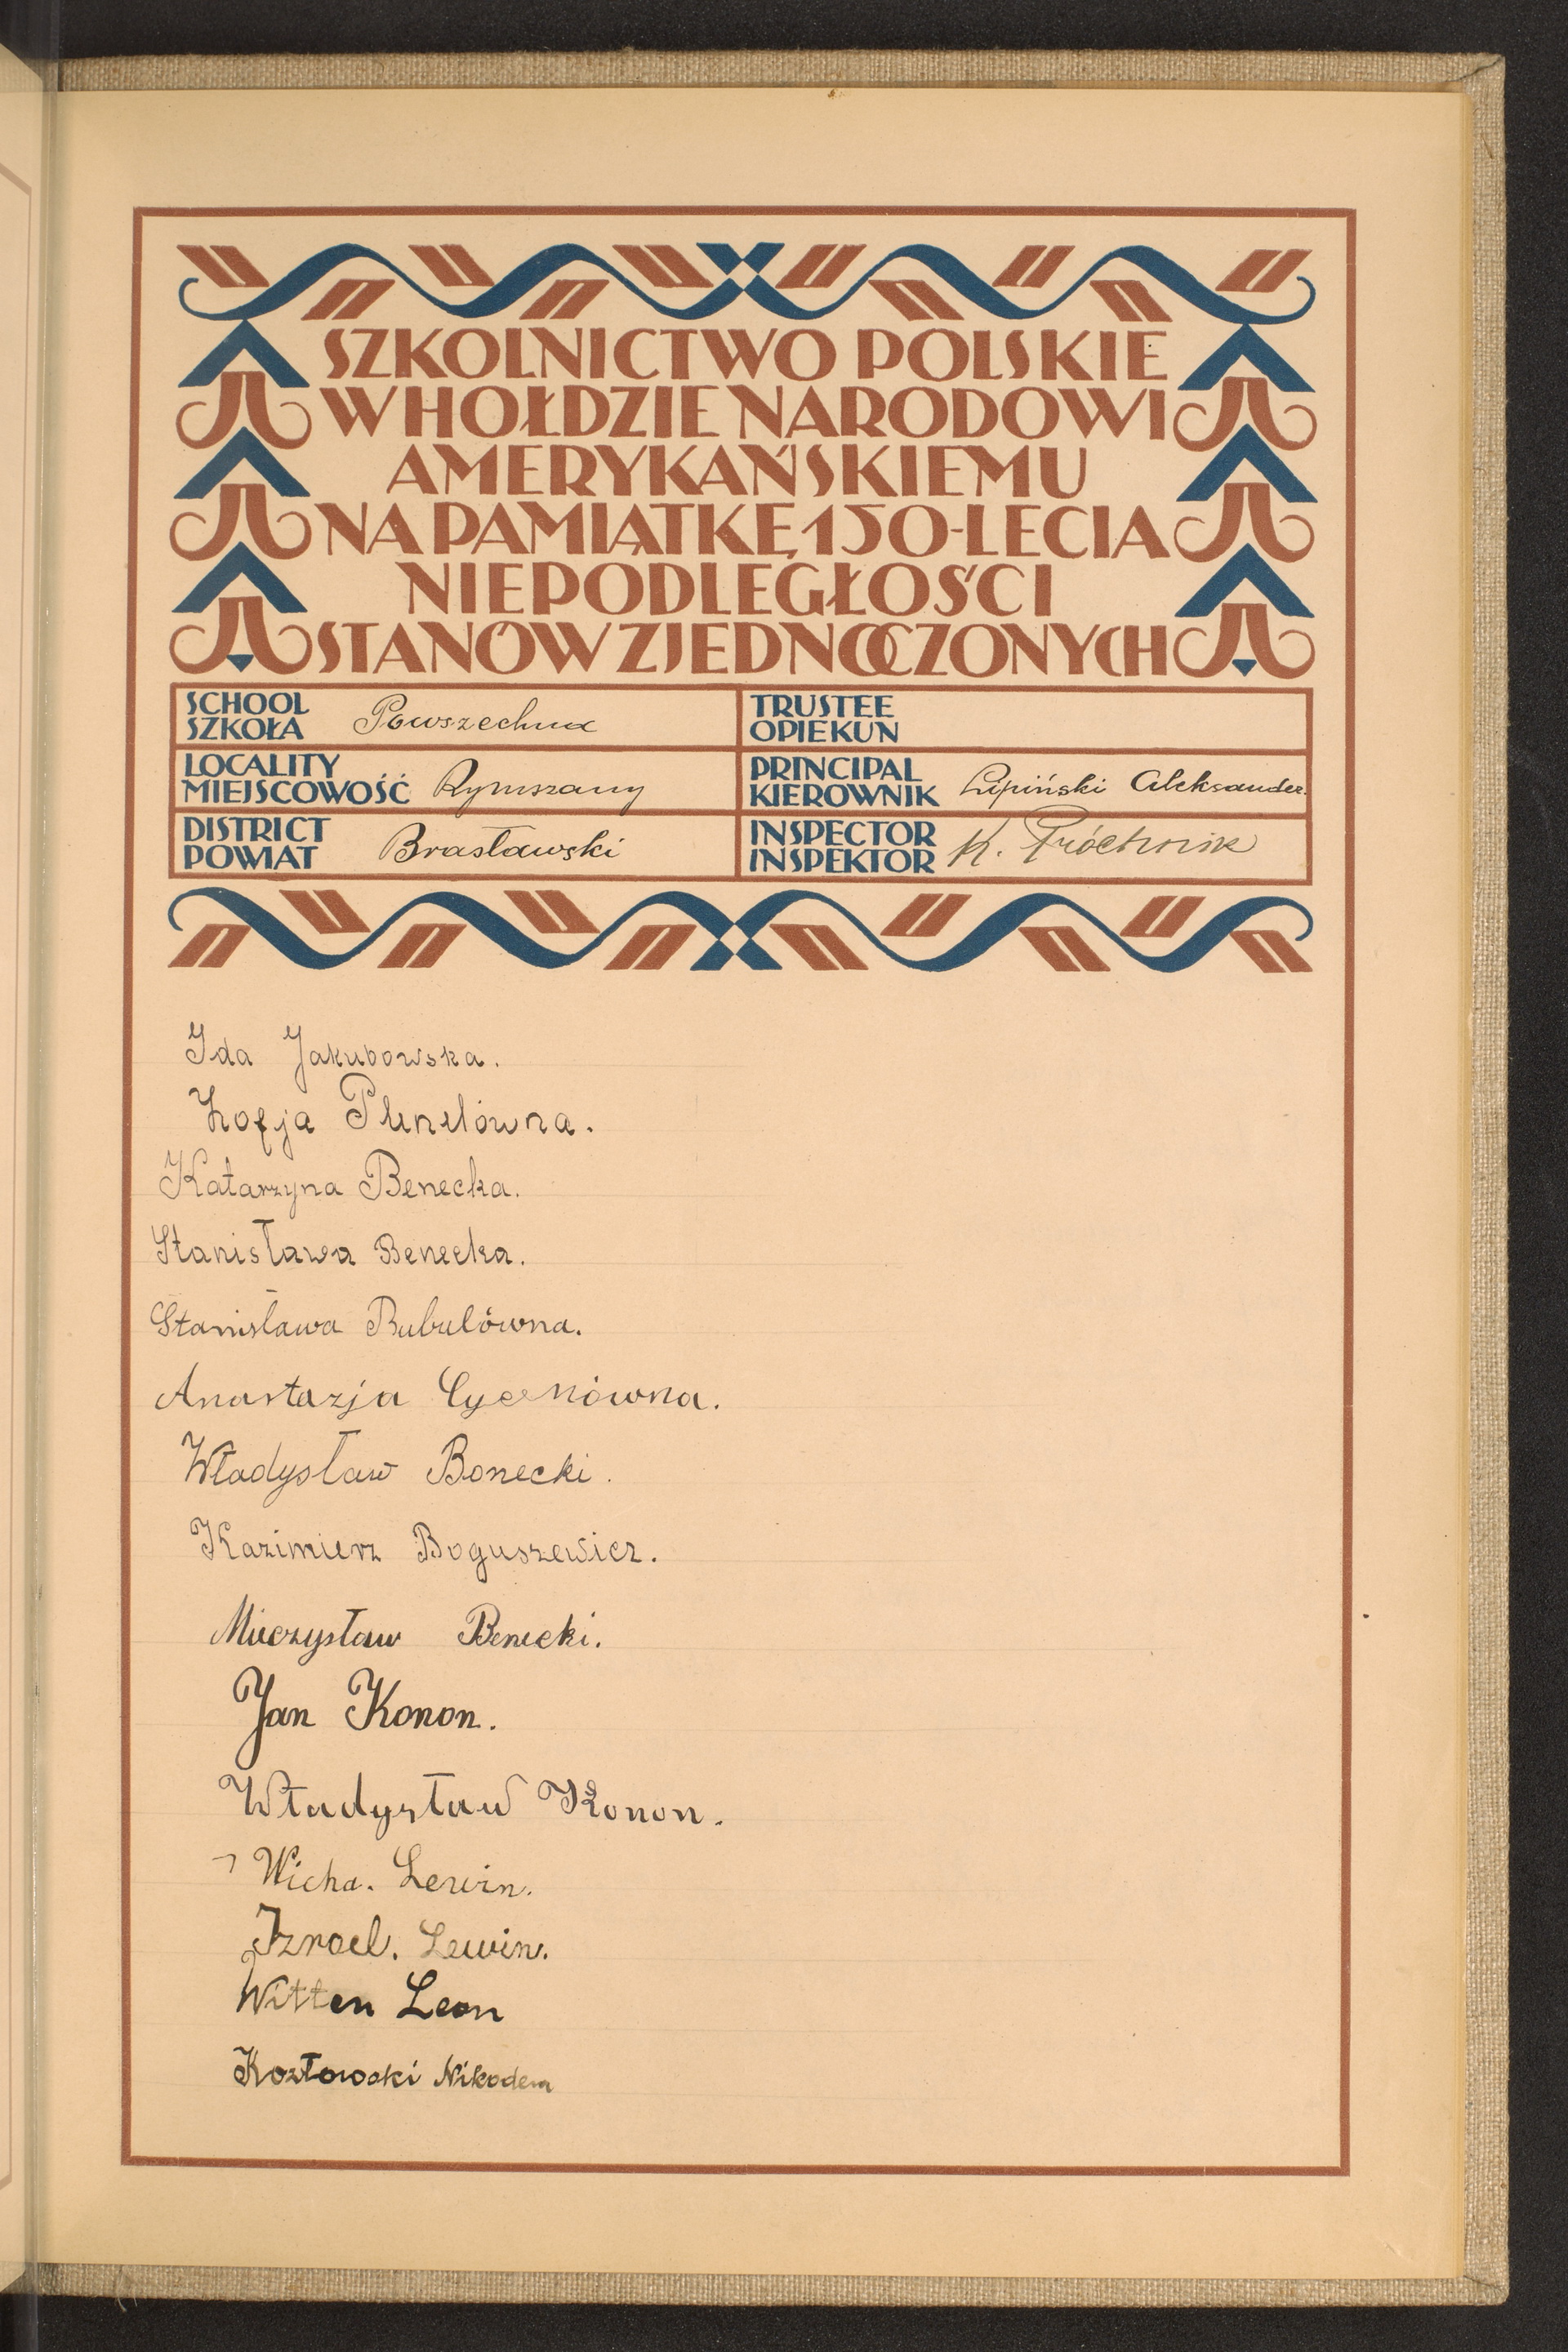 SZKOLNICTWO POLSKIE
W HOŁDZIE NARODOWI
AMERYKAŃSKIEMU
NA PAMIĄTKĘ 150-LECIA
NIEPODLEGŁOŚCI
STANÓW ZJEDNOCZONYCH
SCHOOL
SZKOŁA Powszechna
TRUSTEE
OPIEKUN
LOCALITY
MIEJSCOWOŚĆ Rymszany
PRINCIPAL
KIEROWNIK Lipiński Aleksander.
DISTRICT
POWIAT Brasławski
INSPECTOR
INSPEKTOR K. Próchnik
Ida Jakubowska.
Zofja
Katarzyna Benecka.
Stanisława Benecka.
Stanisława Bubulówna.
Anastazja
Władysław Bonecki.
Kazimierz Boguszewicz.
Mieczysław Benecki.
Jan Konon.
Władysław Konon.
Wicha. Lewin.
Izrael. Lewin.
Witten Leon
Kozłowski Nikodem